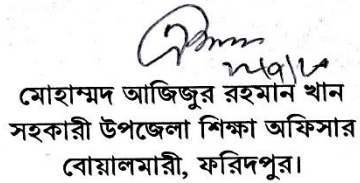 মোহাম্মদ আজিজুর রহমান খান
সহকারী উপজেলা শিক্ষা অফিসার
বোয়ালমারী, ফরিদপুর।